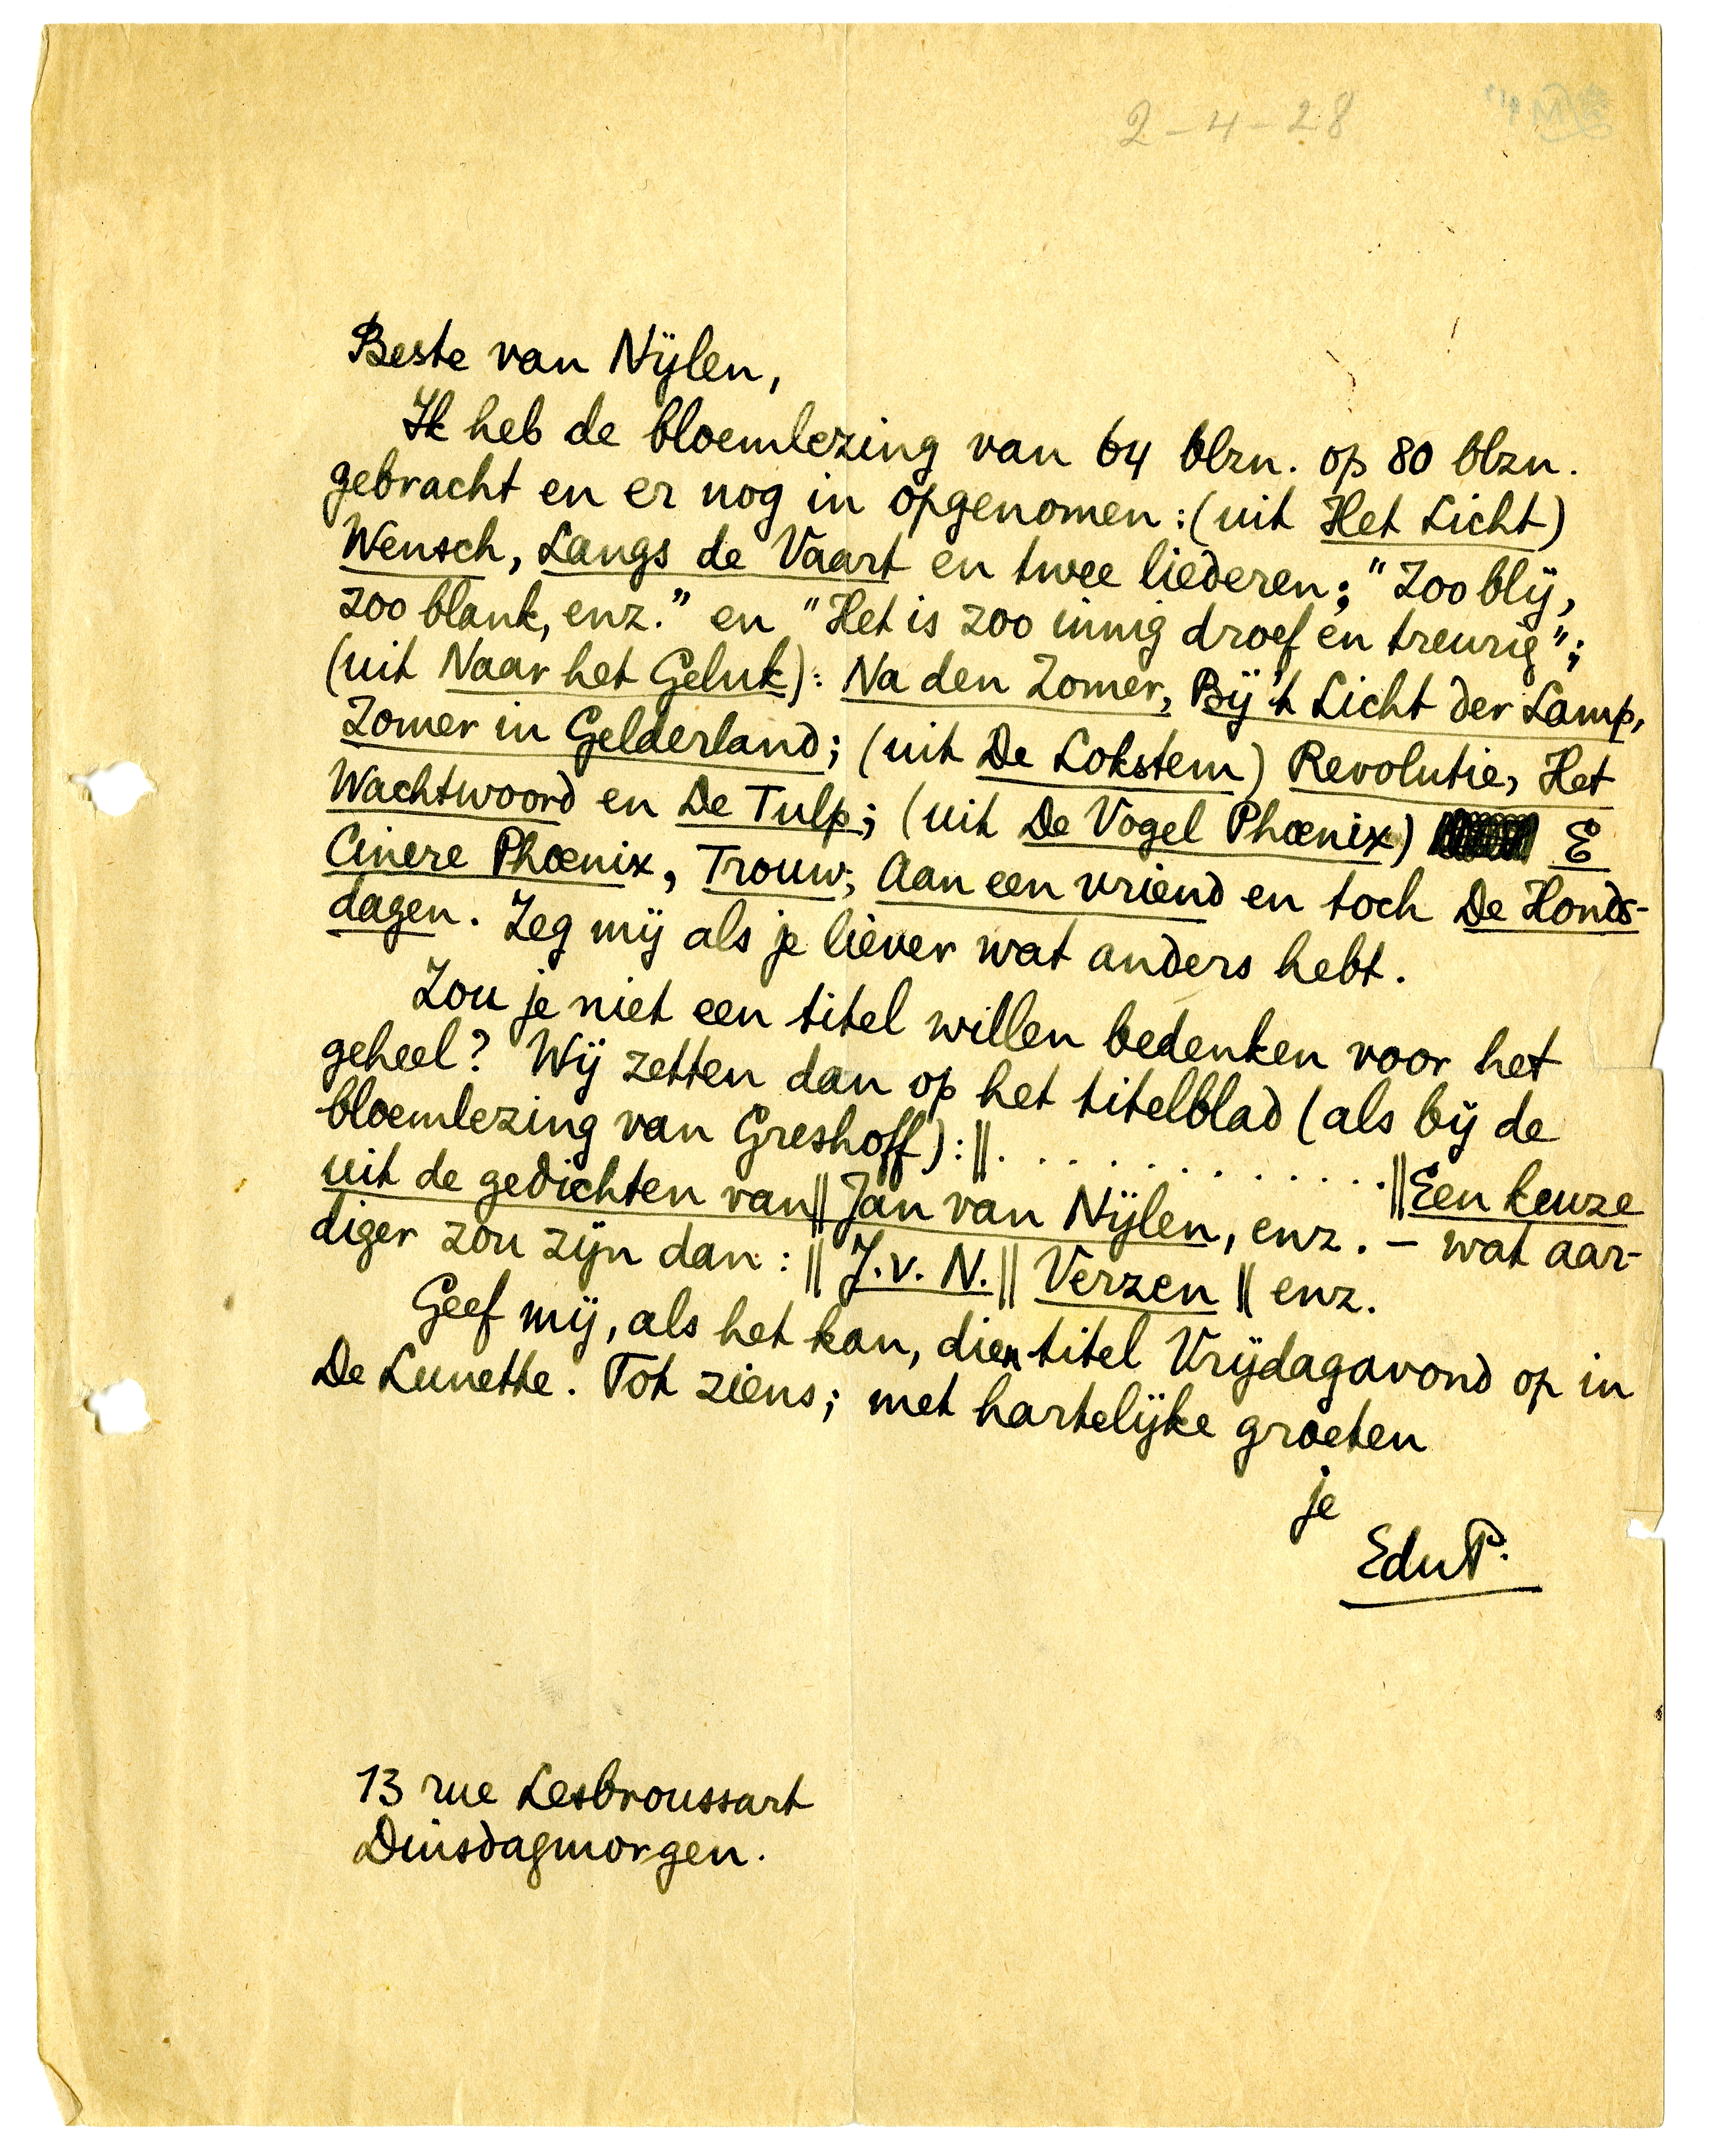 2-4-28
Beste van Nijlen,
Ik heb de bloemlezing van 64 blzn. op 80 blzn.
gebracht en er nog in opgenomen: (uit Het Licht)
Wensch, Langs de Vaart en twee liederen; "Zoo blij,
zoo blank, enz." en "Het is zoo innig droef en treurig";
(uit Naar het Geluk): Na den Zomer, Bij 't Licht der Lamp,
Zomer in Gelderland; (uit De Lokstem) Revolutie, Het
Wachtwoord en De Tulp; (uit De Vogel Phœnix) E
Cinere Phœnix, Trouw, Aan een vriend en toch De Honds-
dagen. Zeg mij als je liever wat anders hebt.
Zou je niet een titel willen bedenken voor het
geheel? Wij zetten dan op het titelblad (als bij de
bloemlezing van Greshoff): || . . . . . . . . . . . . || Een keuze
uit de gedichten van || Jan van Nijlen, enz. – wat aar-
diger zou zijn dan: || J. v. N. || Verzen || enz.
Geef mij, als het kan, dien titel Vrijdagavond op in
De Lunette. Tot ziens; met hartelijke groeten
je
EduP.
13 rue Lesbroussart
Dinsdagmorgen.